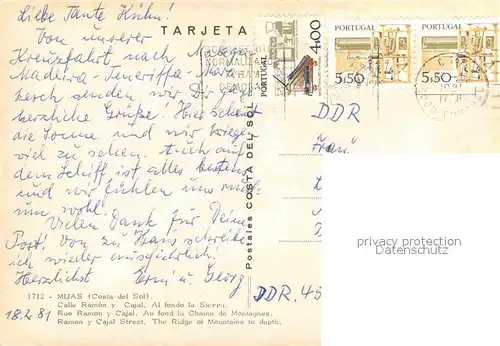 Liebe Tante Kuhm!
TARJETA
Von unserer
Kreuzfahrt nach Malaga
Madeira-Teneriffa-Mara
kesch senden wir Dir
herzliche Grüße! Hier scheint
die Sonne und wir kriegen
viel zu sehen. Auch auf
dem Schiff ist alles bestens
und wir fühlen uns
wohl.
Vielen Dank für Deine
Post! Von zu Haus schreibe
ich wieder ausführlich!
Herzlichst Erni u. Georg
1712 - MIJAS (Costa del Sol).
Calle Ramón y Cajal. Al fondo la Sierra.
Rue Ramon y Cajal. Au fond la Chaine de Montagnes.
Ramon y Cajal Street. The Ridge of Mountains to depth.
18.2.81
Postales COSTA DEL SOL
PORTUGAL
4.00
PORTUGAL
5.50
PORTUGAL
5.50
DDR
Frau
DDR. 45
privacy protection
Datenschutz